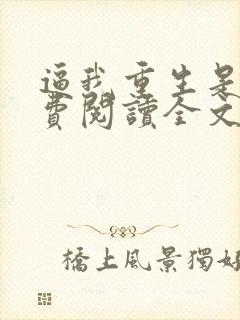 逼我重生是
費閱讀全文
橋上風景獨好